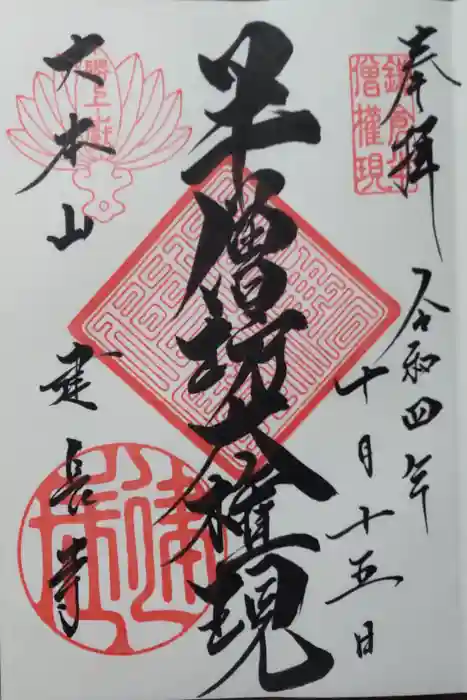 奉拝
令和四年
十月十五日
鎌倉半
僧權現
半僧坊大権現
勝上嶽
大本山
建長寺